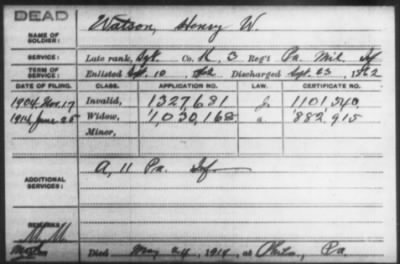 DEAD
NAME OF SOLDIER: Watson, Henry W.
SERVICE: Late rank, Sgt. Co. K. 3 Reg't Pa. Mil. Inf
TERM OF SERVICE: Enlisted Sept. 10, 1862 Discharged Sept. 23, 1862
DATE OF FILING. CLASS. APPLICATION NO. LAW. CERTIFICATE NO.
1904 Nov. 17 Invalid, 1327,681 J 1101,540
1914 June 25 Widow, 1,030,168 a. 882,915
Minor,
ADDITIONAL SERVICES: A, 11 Pa. Inf.
REMARKS:
Died May 24, 1914, at Phila, Pa.